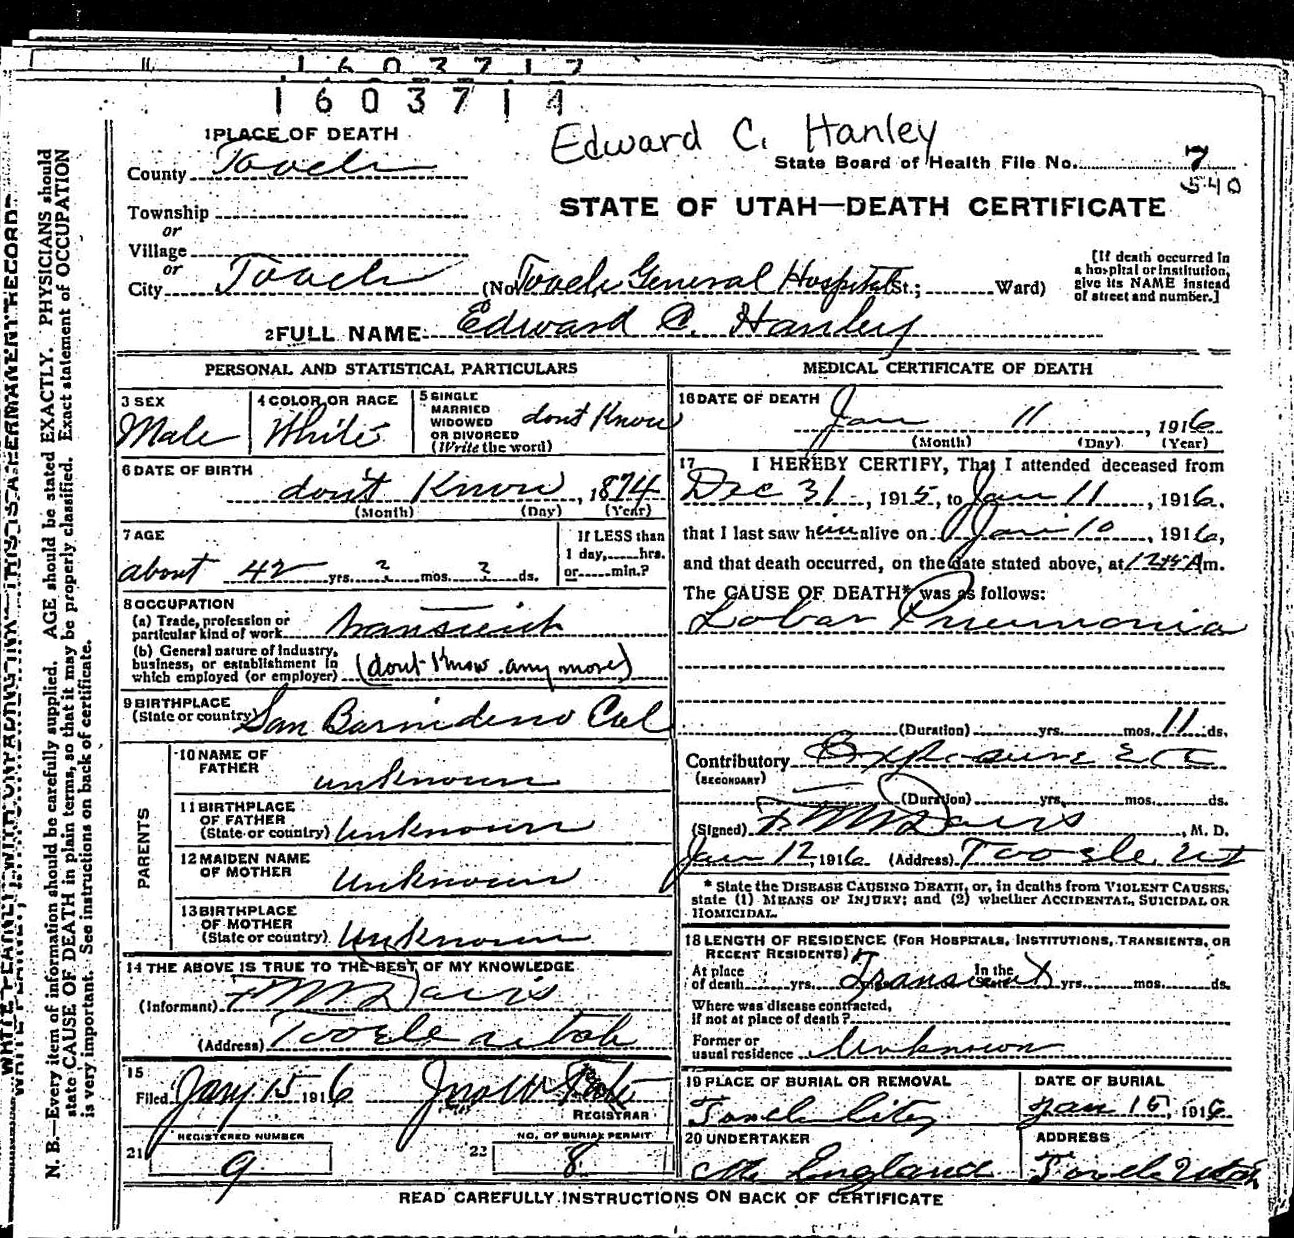 1603717
1603714
Edward C. Hanley
1 PLACE OF DEATH
County Tooele
State Board of Health File No. 7
540
Township
or
Village
or
City Tooele (No. Tooele General Hospital St.; Ward)
STATE OF UTAH—DEATH CERTIFICATE
[If death occurred in
a hospital or institution,
give its NAME instead
of street and number.]
2 FULL NAME Edward C. Hanley
PERSONAL AND STATISTICAL PARTICULARS
3 SEX
Male
4 COLOR OR RACE
White
5 SINGLE
MARRIED
WIDOWED
OR DIVORCED
(Write the word)
dont Know
6 DATE OF BIRTH
dont Know, 1874
(Month) (Day) (Year)
7 AGE
about 42 yrs. ? mos. ? ds.
If LESS than
1 day, hrs.
or min.?
8 OCCUPATION
(a) Trade, profession or
particular kind of work transient
(b) General nature of Industry,
business, or establishment in
which employed (or employer) (dont Know any more)
9 BIRTHPLACE
(State or country) San Barnideno Cal
PARENTS
10 NAME OF
FATHER
unknown
11 BIRTHPLACE
OF FATHER
(State or country) Unknown
12 MAIDEN NAME
OF MOTHER
Unknown
13 BIRTHPLACE
OF MOTHER
(State or country) Unknown
14 THE ABOVE IS TRUE TO THE BEST OF MY KNOWLEDGE
(Informant) F M Davis
(Address) Tooele Utah
15
Filed Jany 15 1916
REGISTRAR
21 REGISTERED NUMBER
9
22 NO. OF BURIAL PERMIT
8
MEDICAL CERTIFICATE OF DEATH
16 DATE OF DEATH
Jan 11, 1916
(Month) (Day) (Year)
17 I HEREBY CERTIFY, That I attended deceased from
Dec 31, 1915, to Jan 11, 1916,
that I last saw him alive on Jan 10, 1916,
and that death occurred, on the date stated above, at 12 45 A m.
The CAUSE OF DEATH* was as follows:
Lobar Pneumonia
(Duration) yrs. mos. 11 ds.
Contributory Exposure etc
(SECONDARY)
(Duration) yrs. mos. ds.
(Signed) F M Davis, M. D.
Jan 12, 1916 (Address) Tooele, Ut
* State the DISEASE CAUSING DEATH, or, in deaths from VIOLENT CAUSES,
state (1) MEANS OF INJURY; and (2) whether ACCIDENTAL, SUICIDAL OR
HOMICIDAL.
18 LENGTH OF RESIDENCE (FOR HOSPITALS, INSTITUTIONS, TRANSIENTS, OR
RECENT RESIDENTS)
At place
of death yrs. Transient In the yrs. mos. ds.
Where was disease contracted,
If not at place of death?
Former or
usual residence Unknown
19 PLACE OF BURIAL OR REMOVAL
Tooele City
DATE OF BURIAL
Jan 15, 1916
20 UNDERTAKER
England
ADDRESS
Tooele Utah
READ CAREFULLY INSTRUCTIONS ON BACK OF CERTIFICATE
WRITE PLAINLY, WITH UNFADING INK—THIS IS A PERMANENT RECORD
N. B.—Every item of information should be carefully supplied. AGE should be stated EXACTLY. PHYSICIANS should
state CAUSE OF DEATH in plain terms, so that it may be properly classified. Exact statement of OCCUPATION
is very important. See instructions on back of certificate.